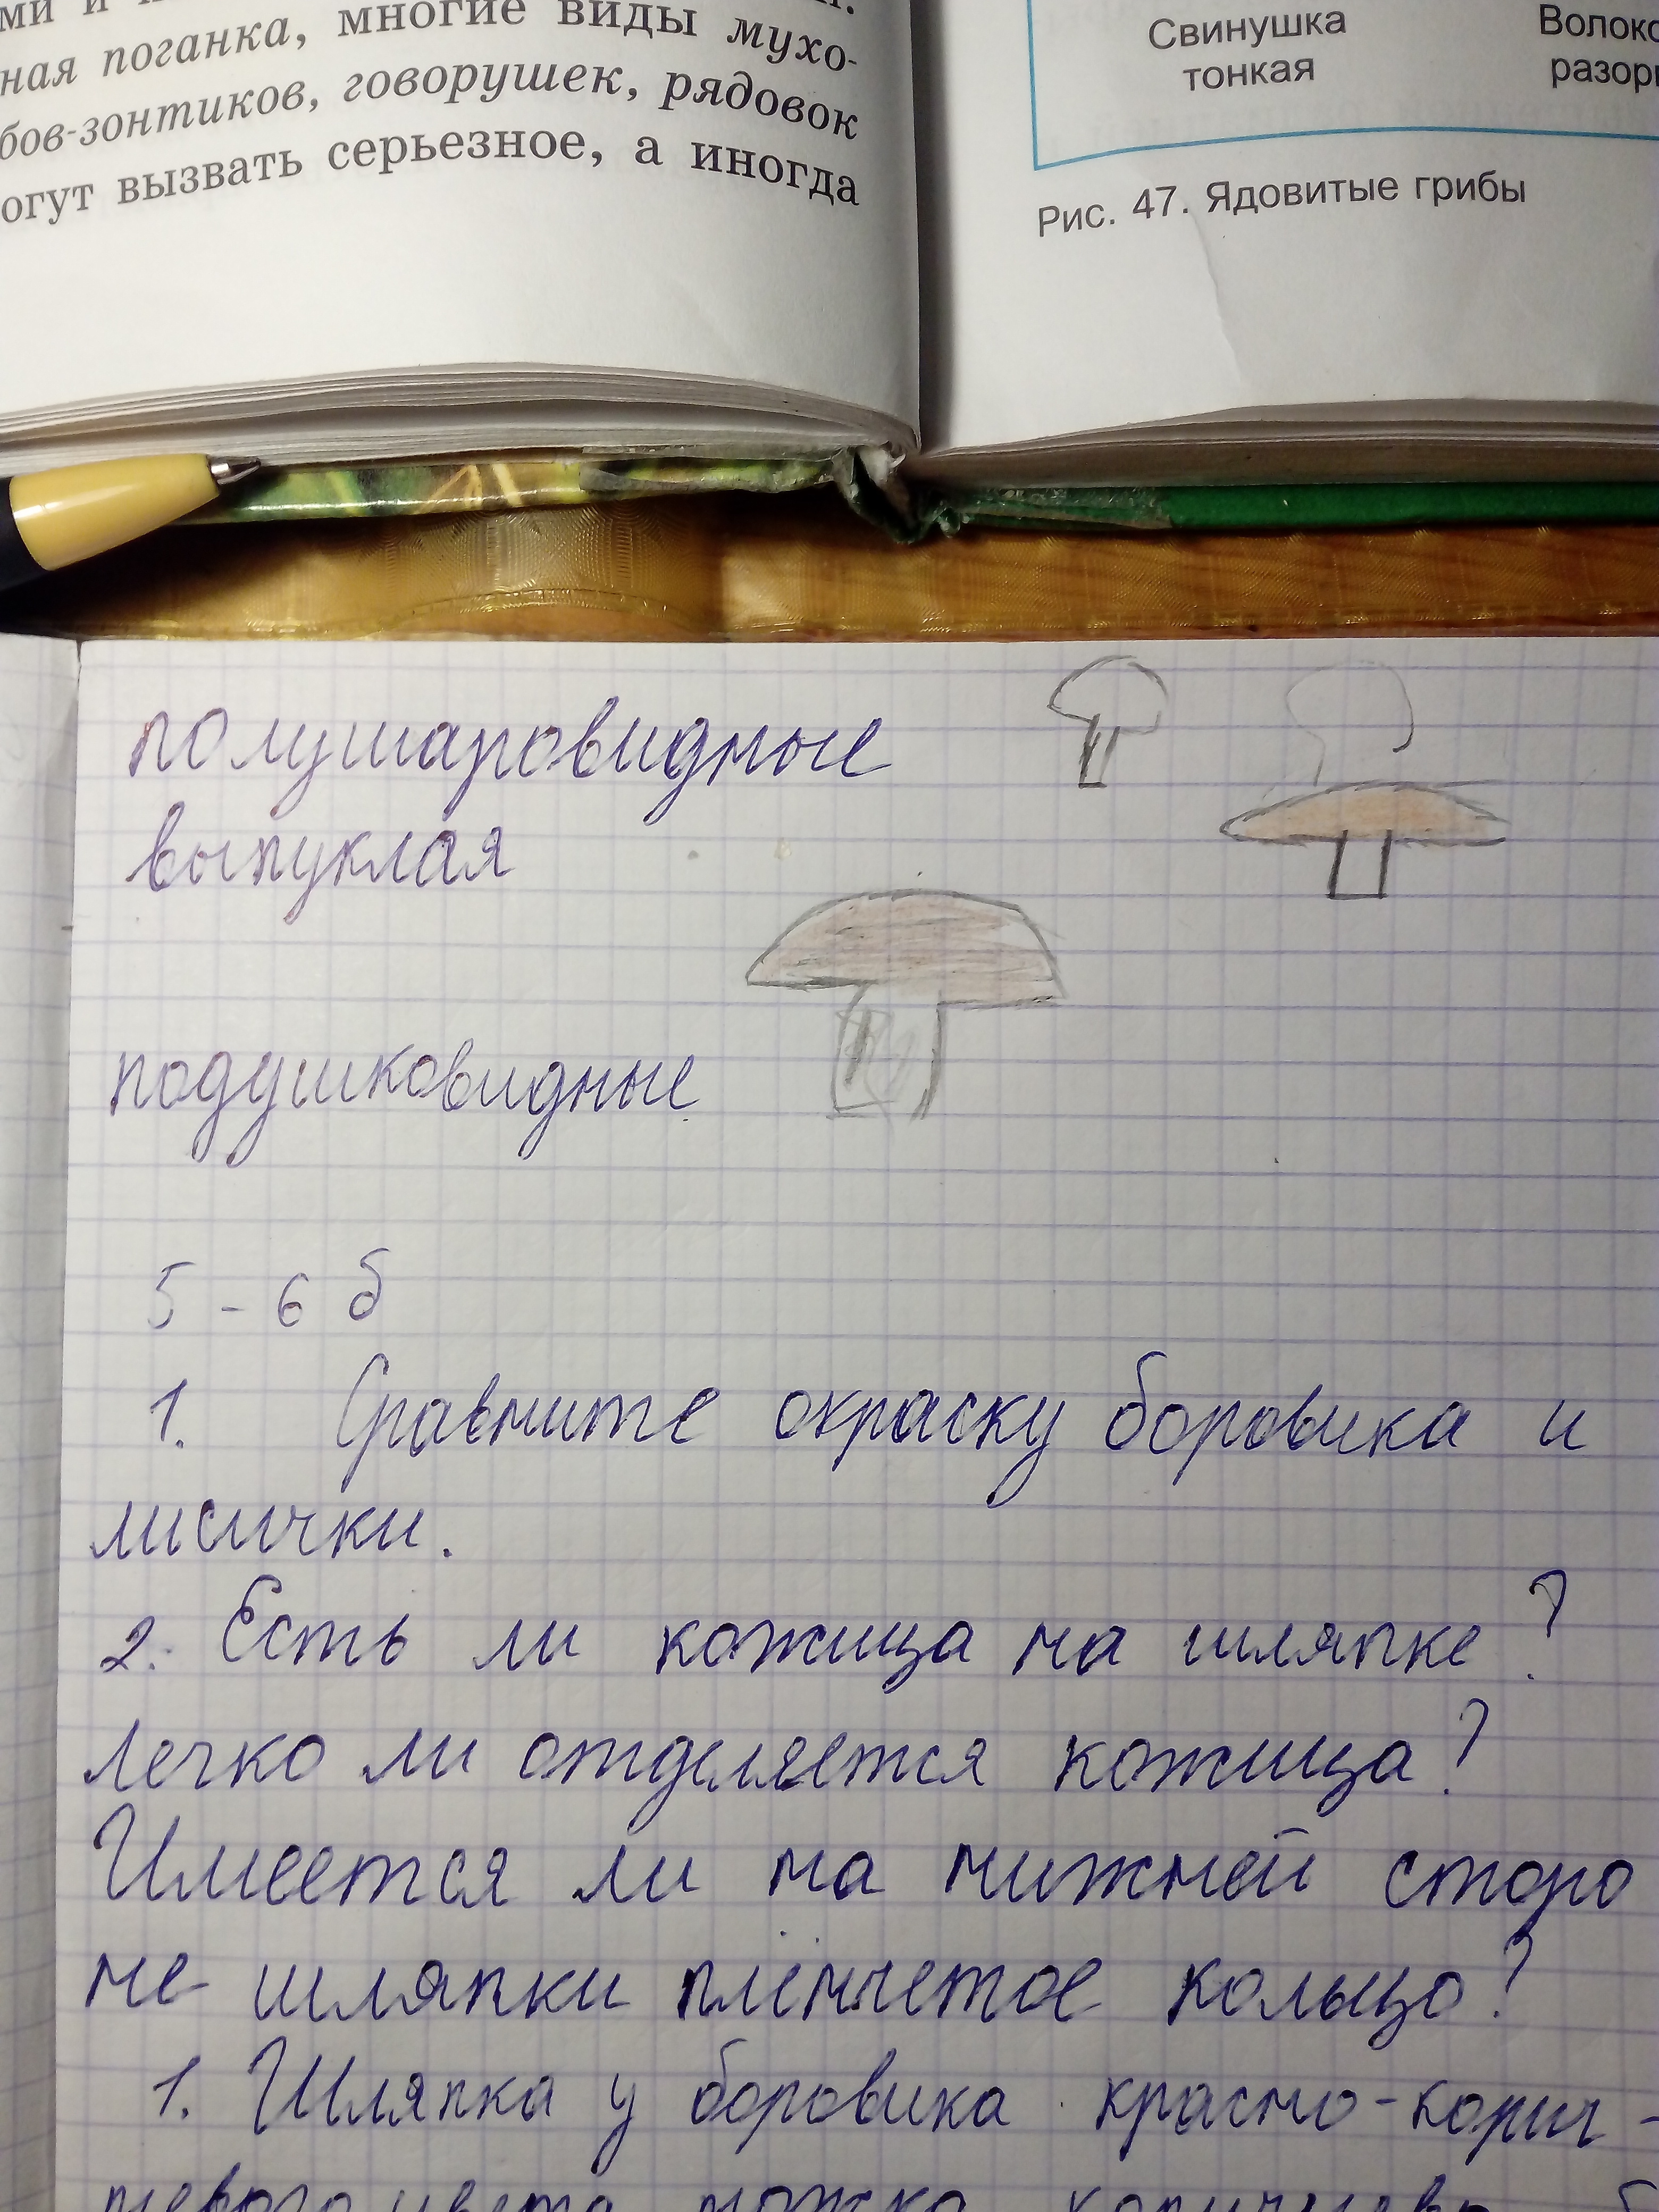 ная поганка, многие виды мухо-
бов-зонтиков, говорушек, рядовок
огут вызвать серьезное, а иногда
Свинушка
тонкая
Рис. 47. Ядовитые грибы
полушаровидные
выпуклая
подушковидные
5 - 6 б
1. Сравните окраску боровика и
лисички.
2. Есть ли кожица на шляпке?
Легко ли отделяется кожица?
Имеется ли на нижней сторо
не шляпки плёнчетое кольцо?
1. Шляпка у боровика красно-корич-